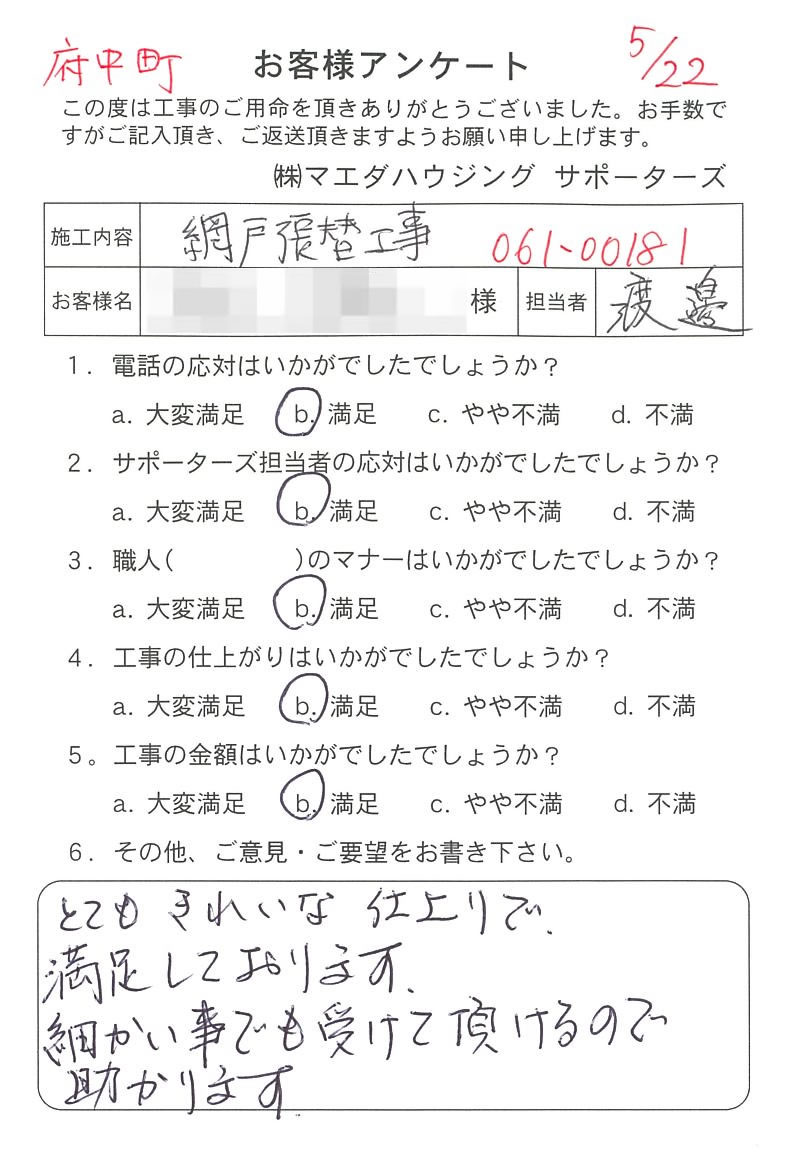 府中町 お客様アンケート 5/22
この度は工事のご用命を頂きありがとうございました。お手数で
すがご記入頂き、ご返送頂きますようお願い申し上げます。
㈱マエダハウジング サポーターズ
施工内容 網戸張替工事 061-00181
お客様名 様 担当者 渡邊
1. 電話の応対はいかがでしたでしょうか?
a. 大変満足 b. 満足 c. やや不満 d. 不満
2. サポーターズ担当者の応対はいかがでしたでしょうか?
a. 大変満足 b. 満足 c. やや不満 d. 不満
3. 職人( )のマナーはいかがでしたでしょうか?
a. 大変満足 b. 満足 c. やや不満 d. 不満
4. 工事の仕上がりはいかがでしたでしょうか?
a. 大変満足 b. 満足 c. やや不満 d. 不満
5。工事の金額はいかがでしたでしょうか?
a. 大変満足 b. 満足 c. やや不満 d. 不満
6. その他、ご意見・ご要望をお書き下さい。
とても きれいな 仕上りで、
満足しております。
細かい事でも受けて頂けるので
助かります。